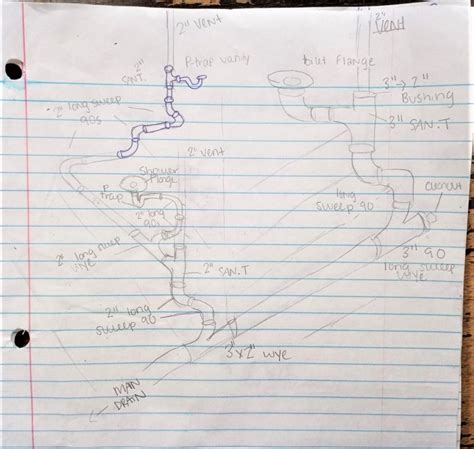 2" vent
2"
Vent
2"
SANT.
P-trap vanity
toilet Flange
3" → 2"
Bushing
3" SAN.T
2" long sweep
90s
2" vent
Shower
Flange
P
trap
2" long
90s
long
sweep 90
cleanout
3" 90
long sweep
wye
2" long sweep
2" SAN.T
2" long
sweep 90
3"x2" wye
MAIN
DRAIN